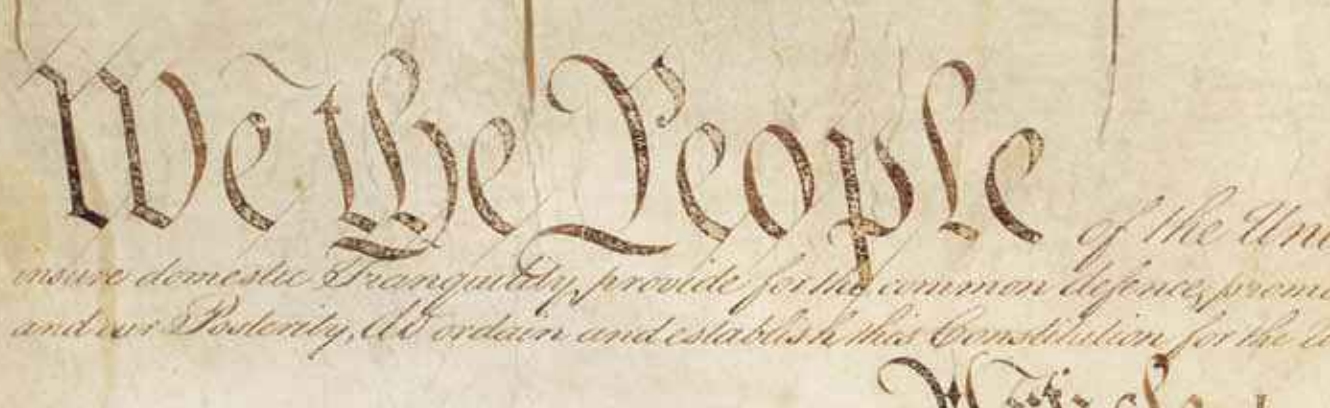 We the People of the Uni
insure domestic Tranquility, provide for the common defence, promo
and our Posterity, do ordain and establish this Constitution for the U
Article